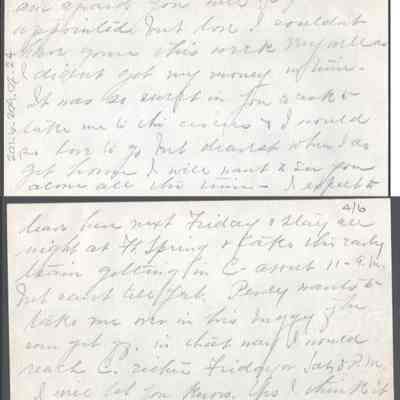 am afraid you will be
appointed but love I couldn't
have gone this week myself as
I didn't get my money in time.
It was so sweet in you to ask to
take me to the circus & I would
so love to go but dearest when I do
get home I will want to see you
alone all the time. I expect to
2016.209.02-24
4/6
leave here next Friday & stay all
night at H. Spring & take the early
train getting in C- about 11 - a.m.
but can't till Sat. Percy wants to
take me over in his buggy if he
can get go. in that way I would
reach C. either Friday or Sat. P.M.
I will let you know. Yes I think it